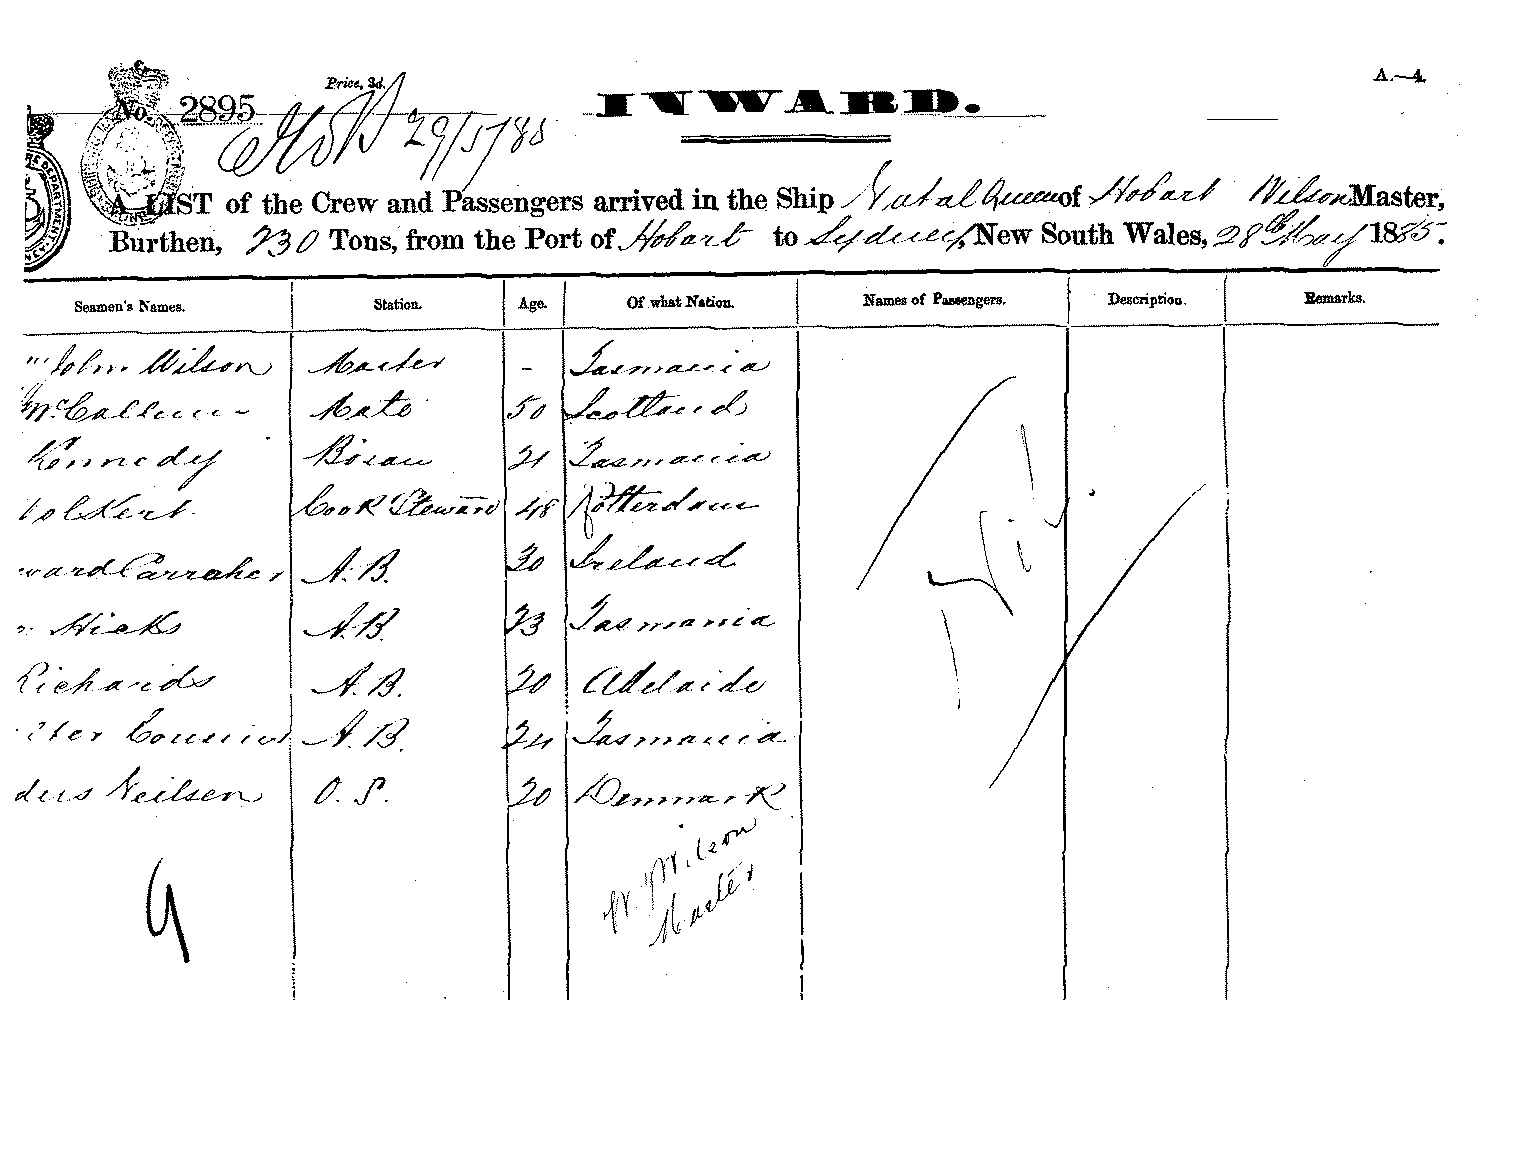 A.—4.
Price, 3d.
No. 2895
INWARD.
29/5/85
A LIST of the Crew and Passengers arrived in the Ship Natal Queen of Hobart Wilson Master,
Burthen, 230 Tons, from the Port of Hobart to Sydney, New South Wales, 28th May 1885.
Seamen's Names. Station. Age. Of what Nation. Names of Passengers. Description. Remarks.
John Wilson Master - Tasmania
McCallum Mate 50 Scotland
Kennedy Bosun 21 Tasmania
Cook & Steward 48 Rotterdam
ward Carraher A.B. 30 Ireland
Hicks A.B. 23 Tasmania
Richards A.B. 20 Adelaide
A.B. 24 Tasmania
ders Neilsen O.S. 20 Denmark
Nil
W. J. Wilson
Master
9